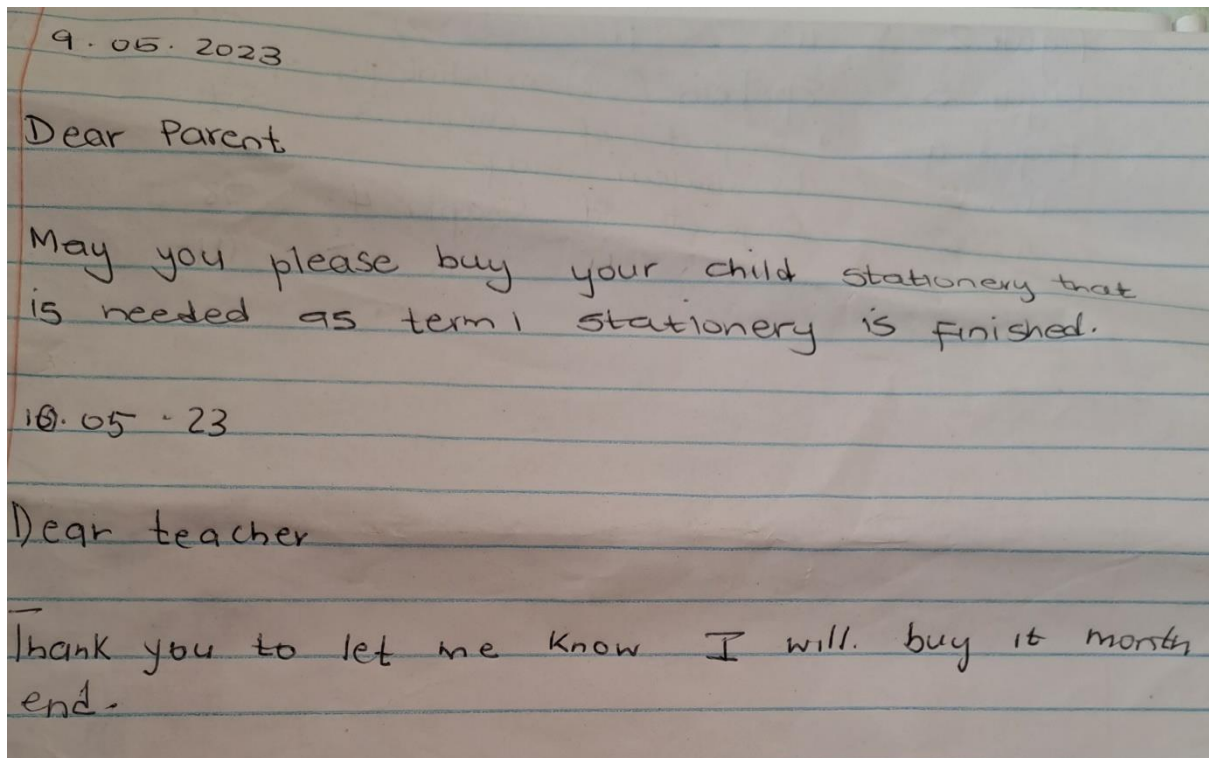 9.05.2023
Dear Parent
May you please buy your child stationery that
is needed as term 1 stationery is finished.
10.05.23
Dear teacher
Thank you to let me know I will. buy it month
end.